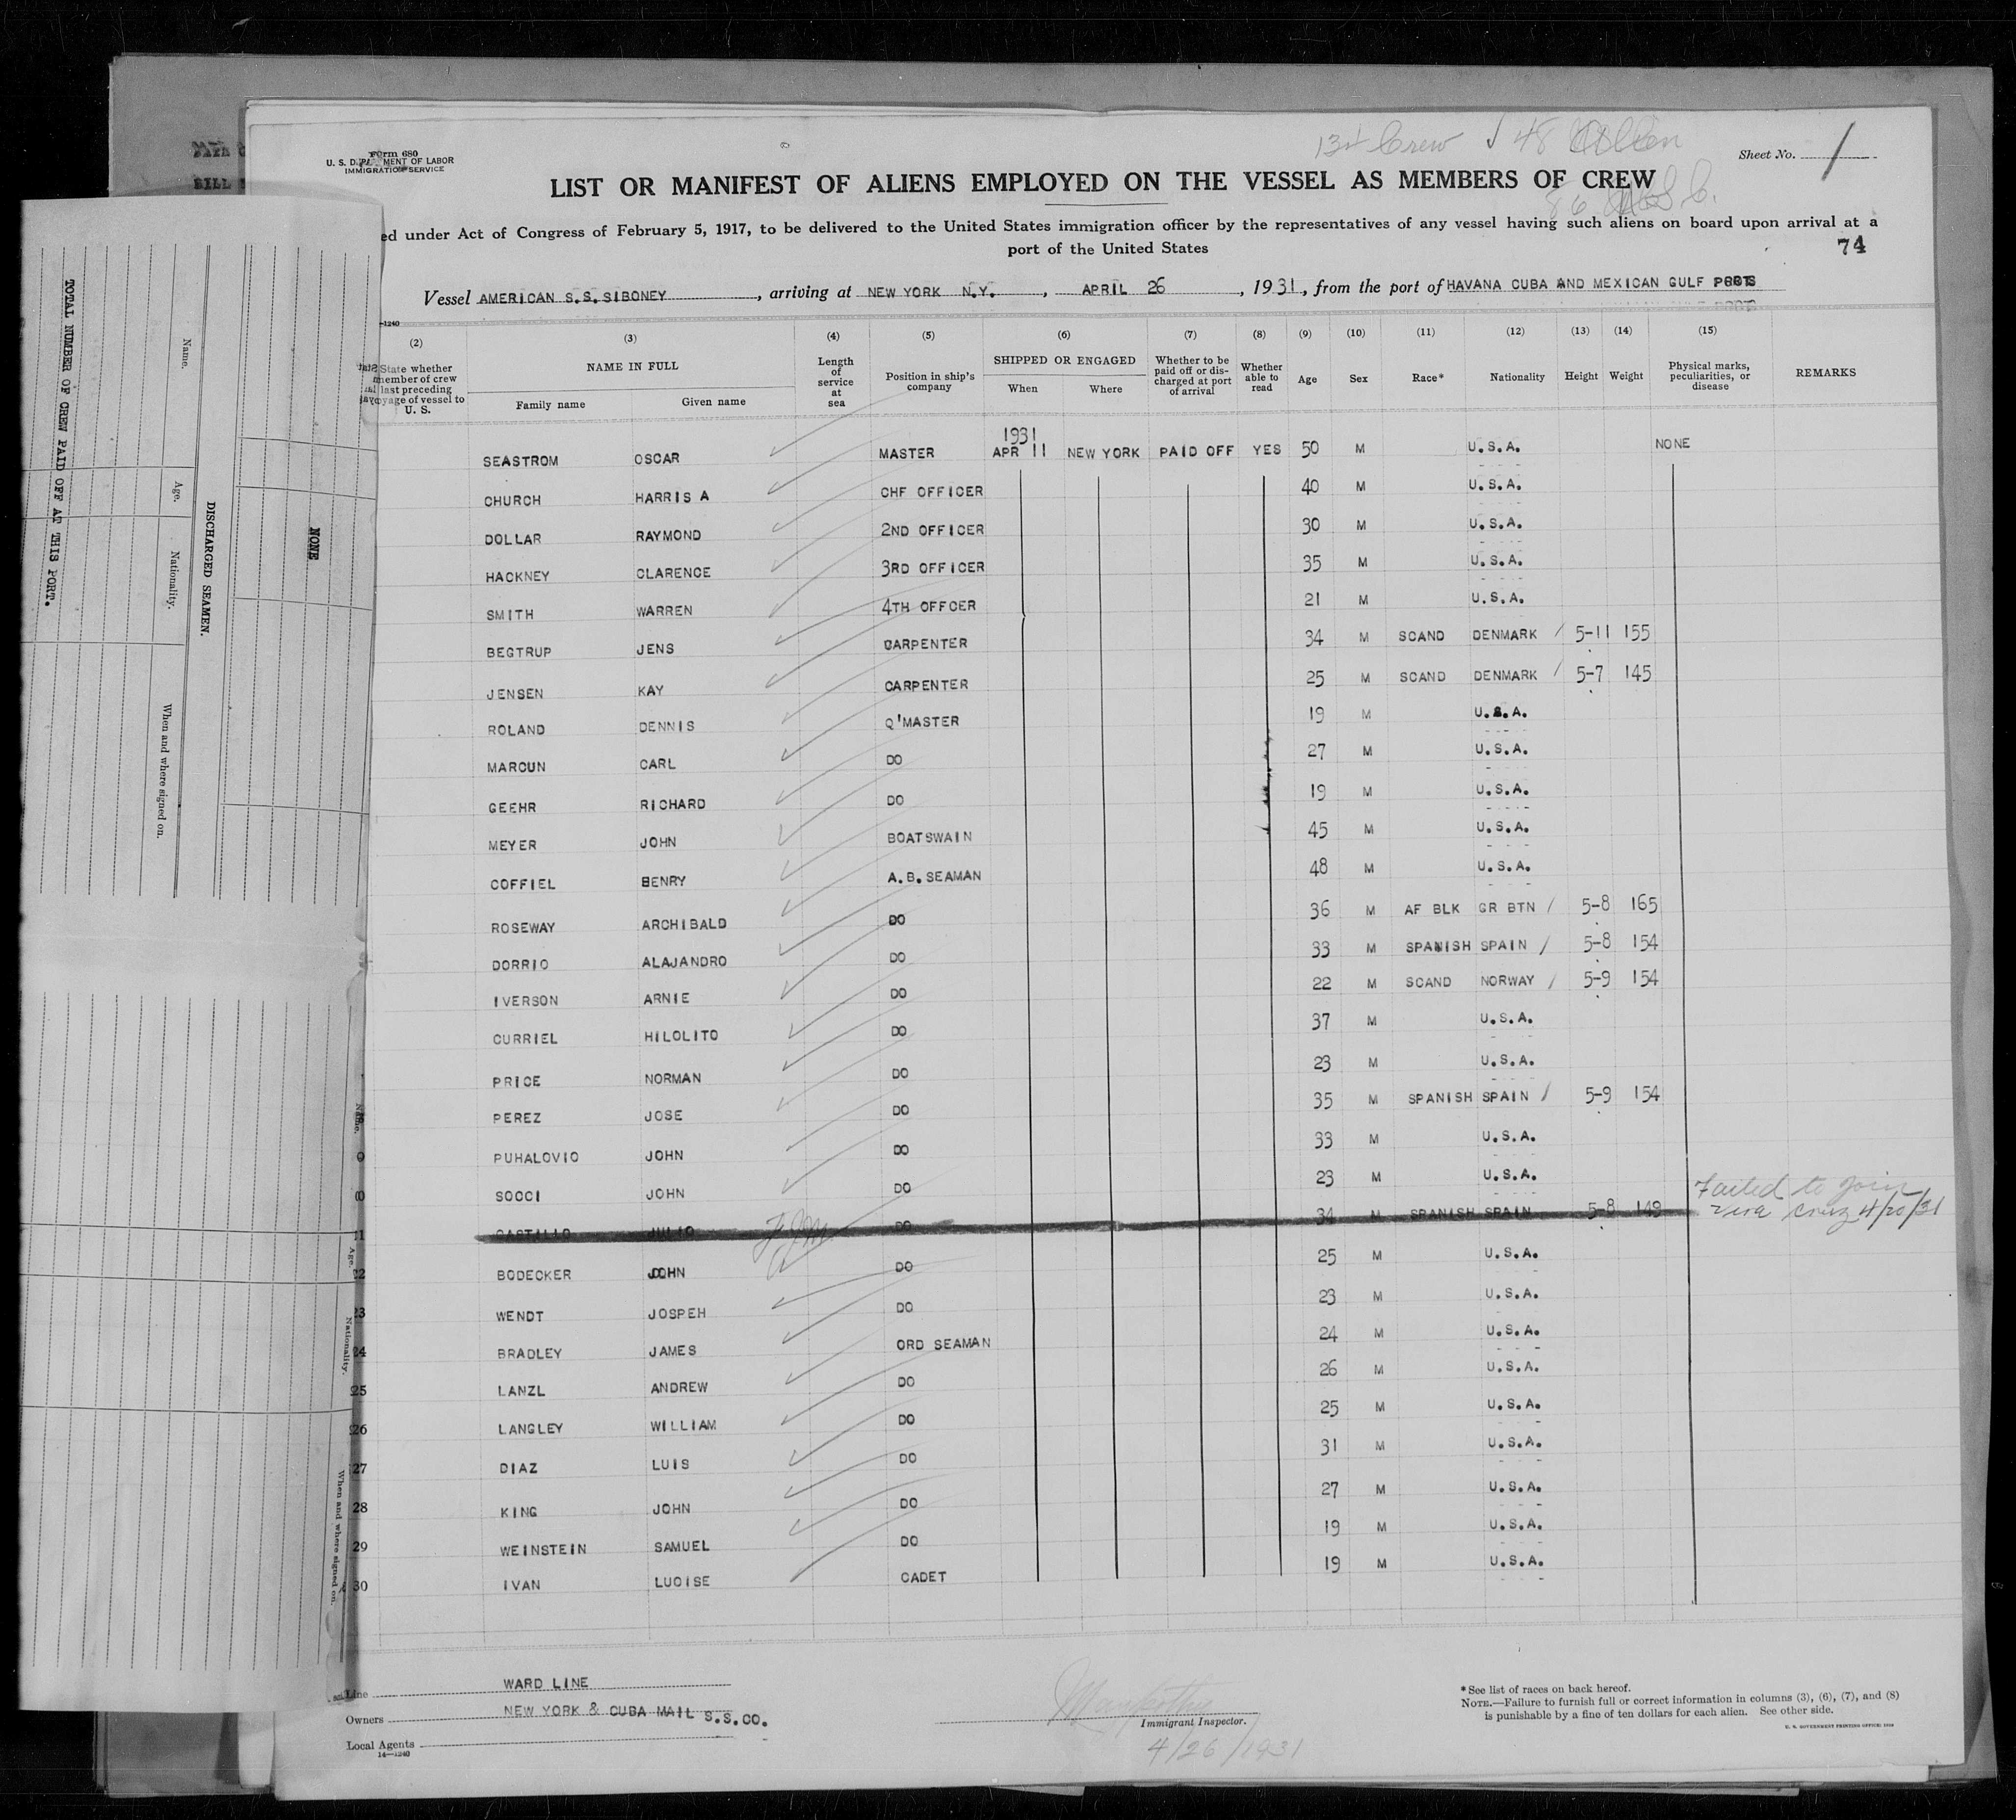 Form 680
U. S. DEPARTMENT OF LABOR
IMMIGRATION SERVICE
134 Crew √ 48 Alien
86 U.S.C.
Sheet No. 1
LIST OR MANIFEST OF ALIENS EMPLOYED ON THE VESSEL AS MEMBERS OF CREW
ed under Act of Congress of February 5, 1917, to be delivered to the United States immigration officer by the representatives of any vessel having such aliens on board upon arrival at a
port of the United States
74
Vessel AMERICAN S.S.SIBONEY, arriving at NEW YORK N.Y., APRIL 26, 1931, from the port of HAVANA CUBA AND MEXICAN GULF PORTS
(2) (3) (4) (5) (6) (7) (8) (9) (10) (11) (12) (13) (14) (15)
State whether member of crew last preceding voyage of vessel to U. S.
NAME IN FULL
Family name Given name
Length of service at sea
Position in ship's company
SHIPPED OR ENGAGED
When Where
Whether to be paid off or discharged at port of arrival
Whether able to read
Age Sex Race* Nationality Height Weight
Physical marks, peculiarities, or disease
REMARKS
1931
SEASTROM OSCAR MASTER APR 11 NEW YORK PAID OFF YES 50 M U.S.A. NONE
CHURCH HARRIS A CHF OFFICER 40 M U.S.A.
DOLLAR RAYMOND 2ND OFFICER 30 M U.S.A.
HACKNEY CLARENCE 3RD OFFICER 35 M U.S.A.
SMITH WARREN 4TH OFFCER 21 M U.S.A.
BEGTRUP JENS CARPENTER 34 M SCAND DENMARK / 5-11 155
JENSEN KAY CARPENTER 25 M SCAND DENMARK / 5-7 145
ROLAND DENNIS Q'MASTER 19 M U.S.A.
MARCUN CARL DO 27 M U.S.A.
GEEHR RICHARD DO 19 M U.S.A.
MEYER JOHN BOATSWAIN 45 M U.S.A.
COFFIEL HENRY A.B.SEAMAN 48 M U.S.A.
ROSEWAY ARCHIBALD DO 36 M AF BLK GR BTN / 5-8 165
DORRIO ALAJANDRO DO 33 M SPANISH SPAIN / 5-8 154
IVERSON ARNIE DO 22 M SCAND NORWAY / 5-9 154
CURRIEL HILOLITO DO 37 M U.S.A.
PRICE NORMAN DO 23 M U.S.A.
PEREZ JOSE DO 35 M SPANISH SPAIN / 5-9 154
PUHALOVIC JOHN DO 33 M U.S.A.
SOCCI JOHN DO 23 M U.S.A.
CASTILLO JULIO DO 34 M SPANISH SPAIN 5-8 149 Failed to join Vera Cruz 4/20/31
22 BODECKER JOHN DO 25 M U.S.A.
23 WENDT JOSPEH DO 23 M U.S.A.
24 BRADLEY JAMES ORD SEAMAN 24 M U.S.A.
25 LANZL ANDREW DO 26 M U.S.A.
26 LANGLEY WILLIAM DO 25 M U.S.A.
27 DIAZ LUIS DO 31 M U.S.A.
28 KING JOHN DO 27 M U.S.A.
29 WEINSTEIN SAMUEL DO 19 M U.S.A.
30 IVAN LUOISE CADET 19 M U.S.A.
Line WARD LINE
Owners NEW YORK & CUBA MAIL S.S.CO.
Local Agents
14—1240
Immigrant Inspector.
4/26/1931
*See list of races on back hereof.
NOTE.—Failure to furnish full or correct information in columns (3), (6), (7), and (8)
is punishable by a fine of ten dollars for each alien. See other side.
U. S. GOVERNMENT PRINTING OFFICE
TOTAL NUMBER OF CREW PAID OFF AT THIS PORT.
DISCHARGED SEAMEN.
Name. Age. Nationality. When and where signed on.
NONE
Name. Age. Nationality. When and where signed on.